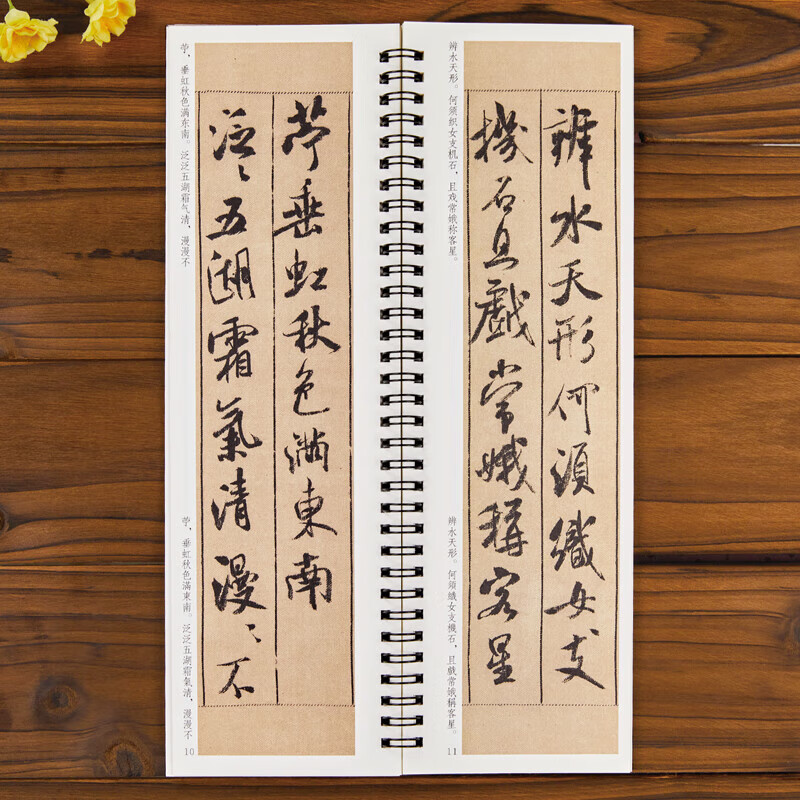 苧垂虹秋色滿東南
泛〻五湖霜氣清漫〻不
苧,垂虹秋色满东南。泛泛五湖霜气清,漫漫不
苧,垂虹秋色滿東南。泛泛五湖霜氣清,漫漫不
10
辨水天形何須織女支
機石且戲常娥稱客星
辨水天形。何须织女支机石,且戏常娥称客星。
辨水天形。何須織女支機石,且戲常娥稱客星。
11